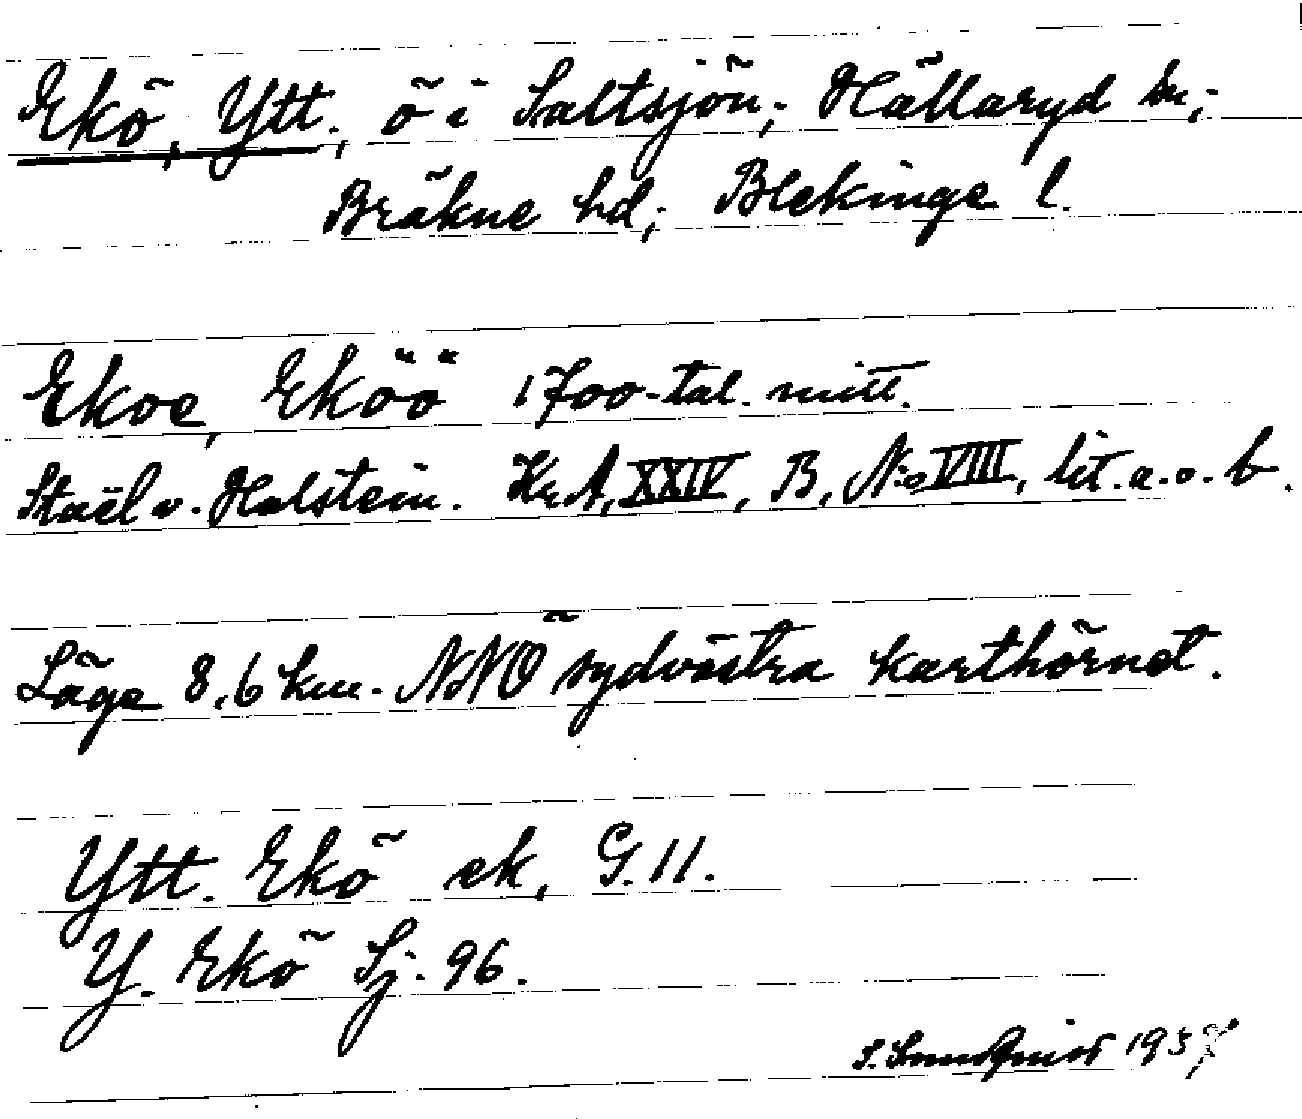 Ekö, Ytt., ö i Saltsjön; Hällaryd sn;
Bräkne hd; Blekinge l.
Ekoe, Eköö 1700-tal. mitt.
Staël v. Holstein. Kr A, XXIV, B, No VIII, lit. a. o. b.
Läge 8,6 km. NNÖ sydvästra karthörnet.
Ytt. Ekö ek, G. 11.
Y. Ekö Sj. 96.
S. 193